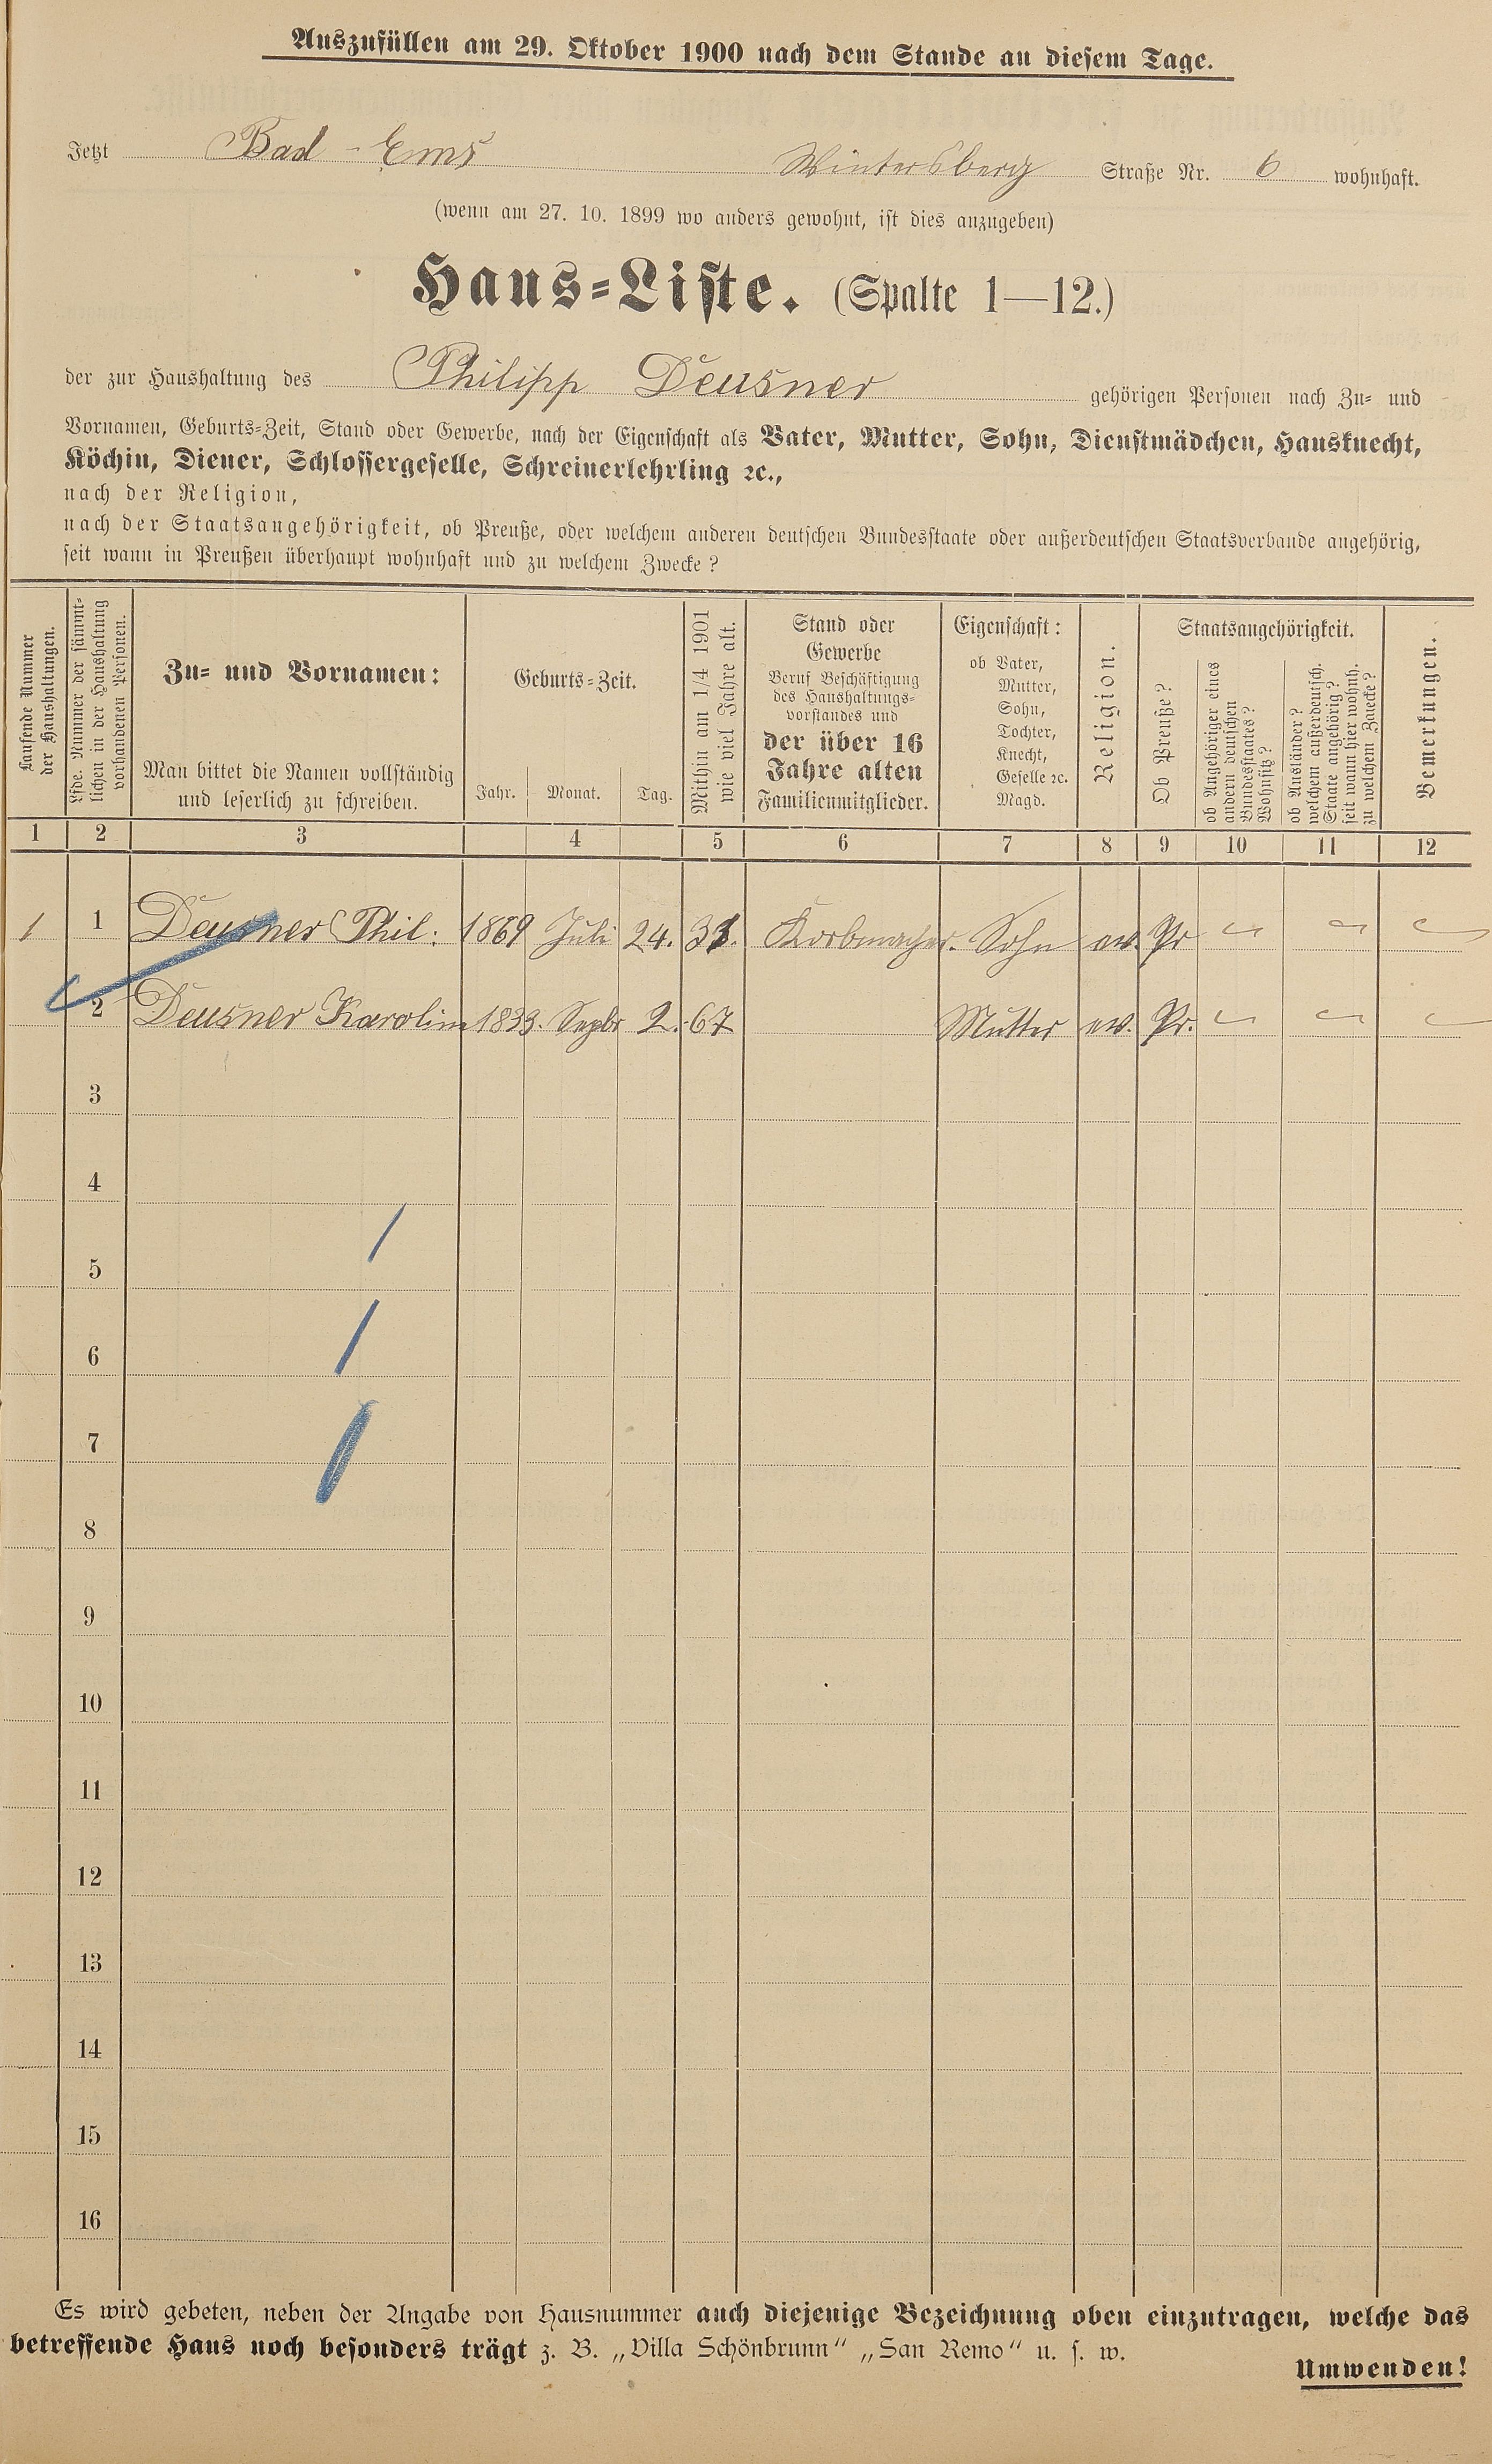 Auszufüllen am 29. Oktober 1900 nach dem Stande an diesem Tage.
Jetzt Bad-Ems Wintersberg Straße Nr. 6 wohnhaft.
(wenn am 27. 10. 1899 wo anders gewohnt, ist dies anzugeben)
Haus-Liste. (Spalte 1—12.)
der zur Haushaltung des Philipp Deusner gehörigen Personen nach Zu- und
Vornamen, Geburts-Zeit, Stand oder Gewerbe, nach der Eigenschaft als Vater, Mutter, Sohn, Dienstmädchen, Hausknecht,
Köchin, Diener, Schlossergeselle, Schreinerlehrling ꝛc.,
nach der Religion,
nach der Staatsangehörigkeit, ob Preuße, oder welchem anderen deutschen Bundesstaate oder außerdeutschen Staatsverbande angehörig,
seit wann in Preußen überhaupt wohnhaft und zu welchem Zwecke?
Laufende Nummer
der Haushaltungen.
Lfde. Nummer der sämmt-
lichen in der Haushaltung
vorhandenen Personen.
Zu- und Vornamen:
Man bittet die Namen vollständig
und leserlich zu schreiben.
Geburts-Zeit.
Jahr. Monat. Tag.
Mithin am 1/4 1901
wie viel Jahre alt.
Stand oder
Gewerbe
Beruf Beschäftigung
des Haushaltungs-
vorstandes und
der über 16
Jahre alten
Familienmitglieder.
Eigenschaft:
ob Vater,
Mutter,
Sohn,
Tochter,
Knecht,
Geselle ꝛc.
Magd.
Religion.
Staatsangehörigkeit.
Ob Preuße?
ob Angehöriger eines
andern deutschen
Bundesstaates?
Wohnsitz?
ob Ausländer?
welchem außerdeutsch.
Staate angehörig?
seit wann hier wohnh.
zu welchem Zwecke?
Bemerkungen.
1 2 3 4 5 6 7 8 9 10 11 12
1 1 Deusner Phil: 1869 Juli 24. 31. Korbmacher. Sohn ev. Pr
2 Deusner Karolin 1833. Sepbr 2. 67 Mutter ev. Pr.
3
4
5
6
7
8
9
10
11
12
13
14
15
16
Es wird gebeten, neben der Angabe von Hausnummer auch diejenige Bezeichnung oben einzutragen, welche das
betreffende Haus noch besonders trägt z. B. „Villa Schönbrunn“ „San Remo“ u. s. w.
Umwenden!